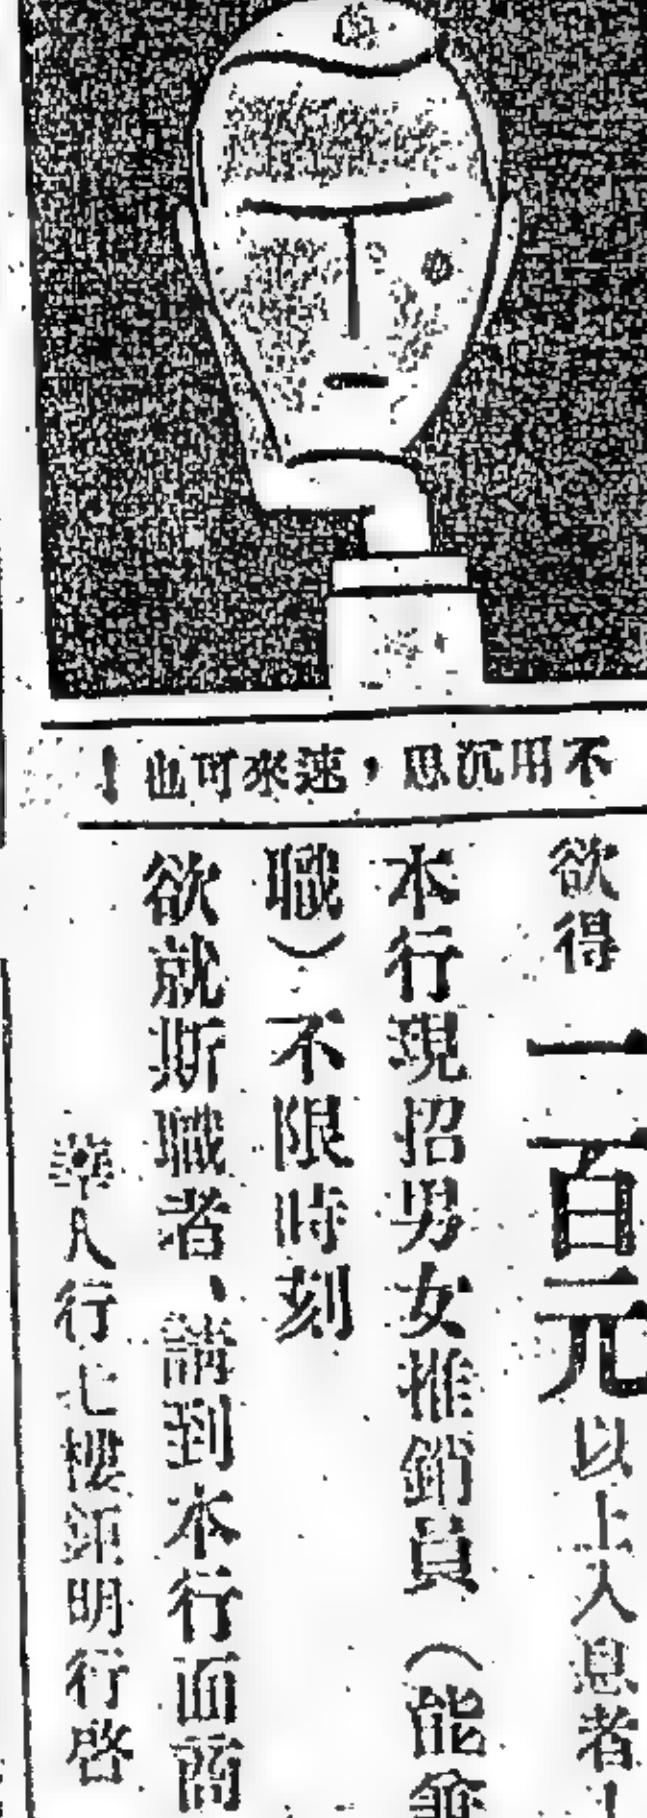 不用沉思，速來可也！
欲得一百元以上入息者！
本行現招男女推銷員（能兼
職）不限時刻
欲就斯職者、請到本行面商
華人行七樓 明行啓